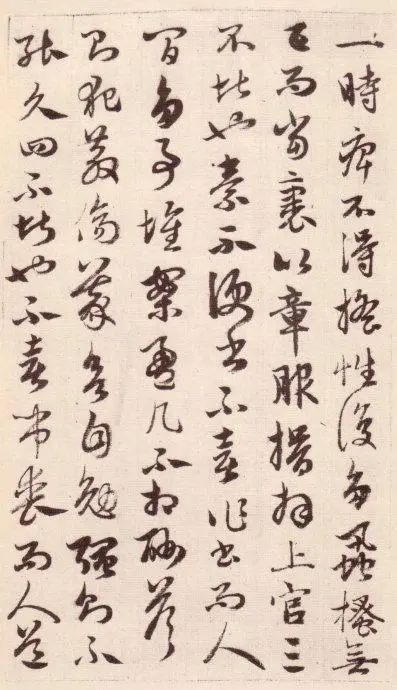 一時痺不得搖性復多蝨搔無
已而當裹以章服揖拜上官三
不堪也素不便書不喜作書而人
間多事堆案盈几不相酬答
則犯教傷義自勉強則不
能久四不堪也不喜弔喪而人道